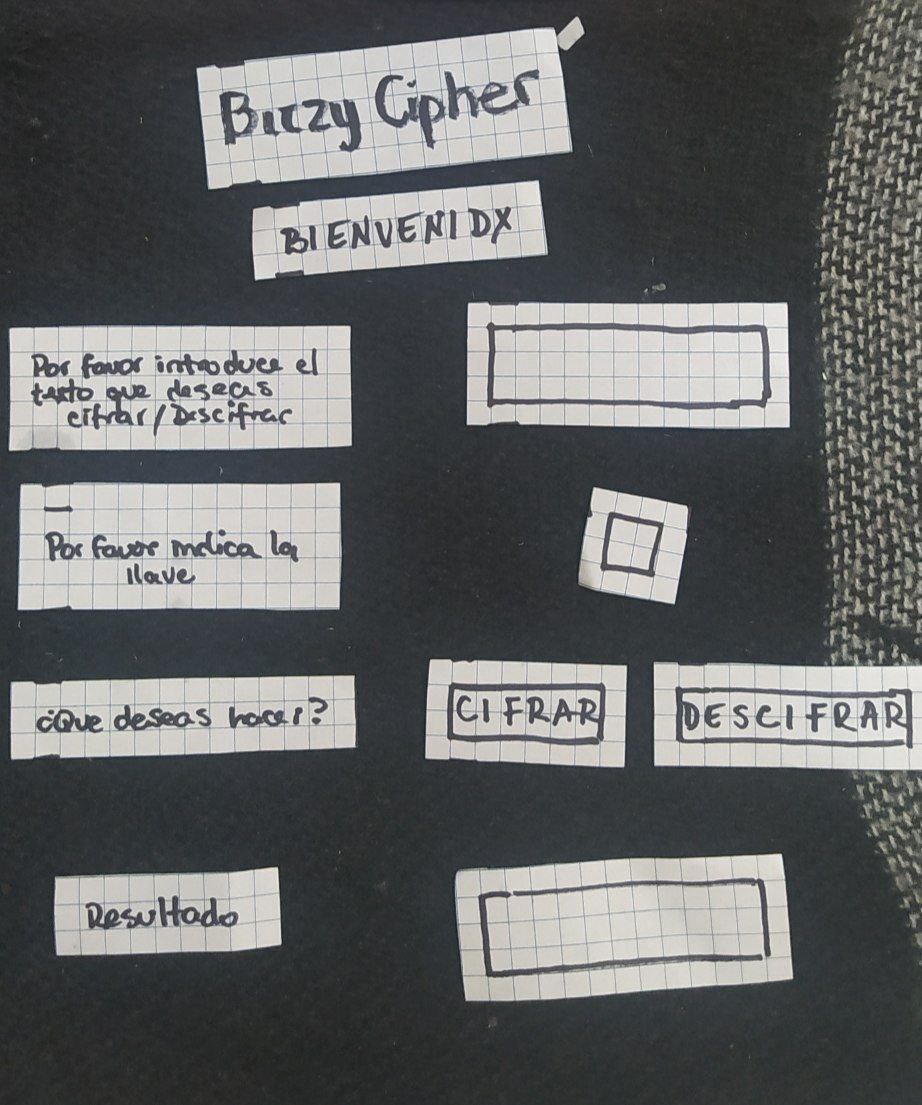 Bitzy Cipher
BIENVENIDX
Por favor introduce el
texto que deseas
cifrar/Descifrar
Por favor indica la
llave
¿Que deseas hacer?
CIFRAR
DESCIFRAR
Resultado